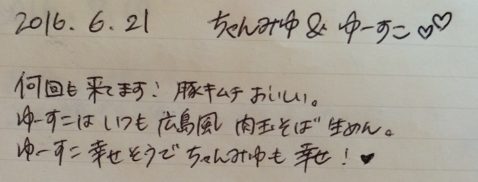 2016. 6. 21 ちゃんみゆ & ゆーすこ ♡♡
何回も来てます! 豚キムチおいしい。
ゆーすこはいつも広島風 肉玉そば 生めん。
ゆーすこ幸せそうでちゃんみゆも幸せ! ♥